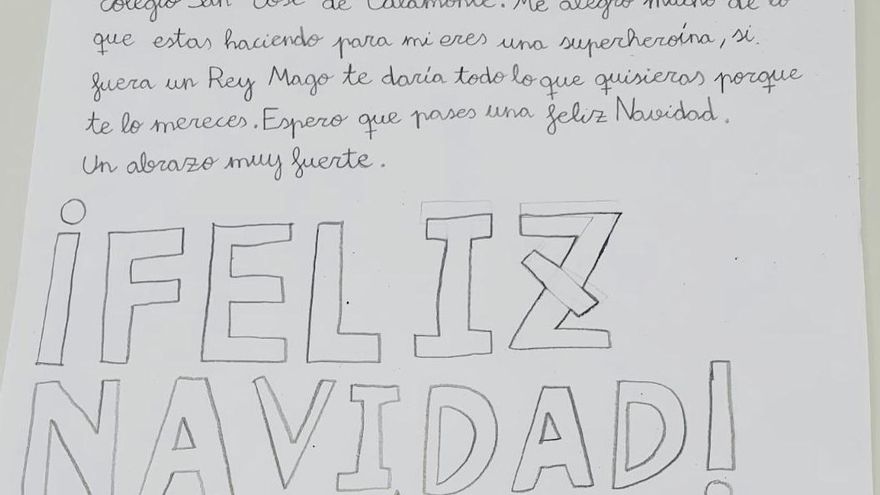 colegio San José de Calamonte. Me alegro mucho de lo
que estas haciendo para mi eres una superheroína, si
fuera un Rey Mago te daría todo lo que quisieras porque
te lo mereces. Espero que pases una feliz Navidad.
Un abrazo muy fuerte.
¡FELIZ
NAVIDAD!